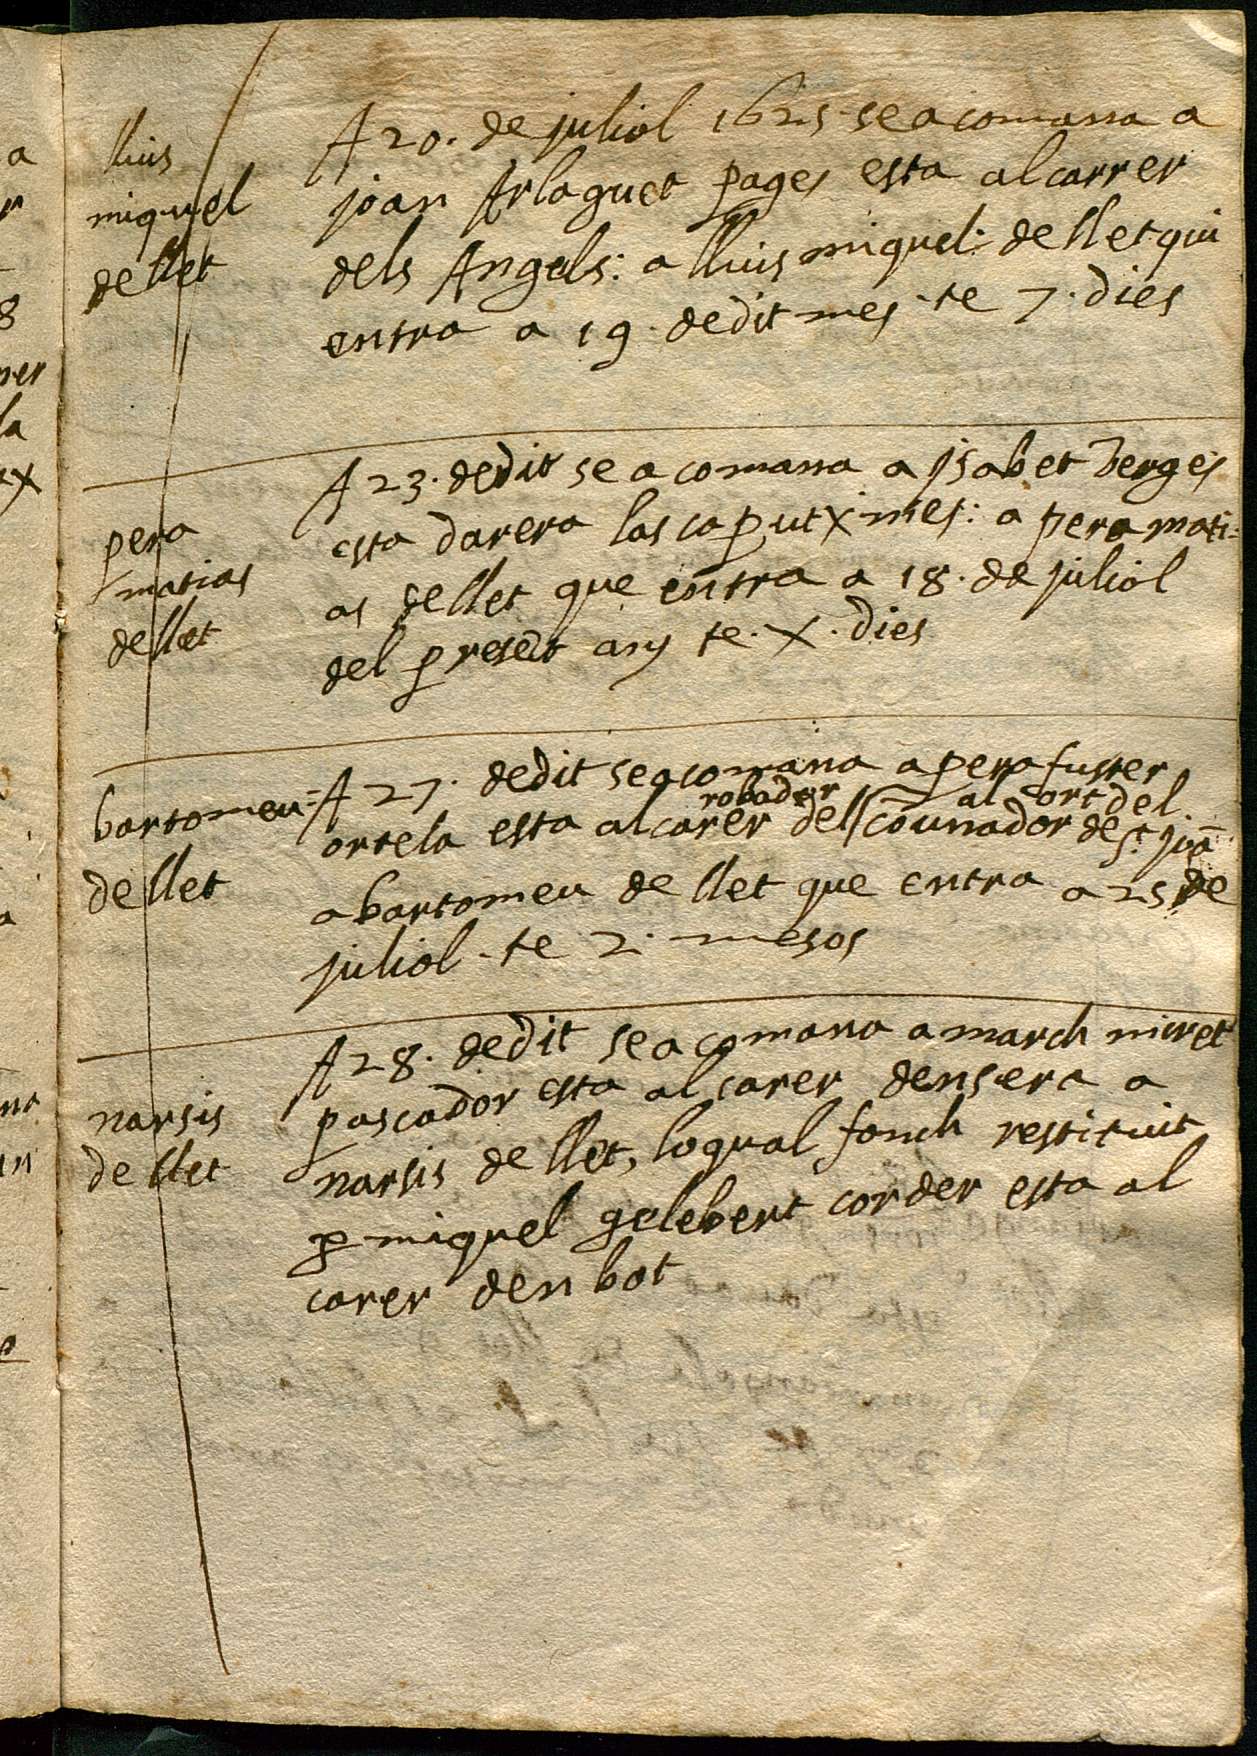 lluis
miquel
de llet
A 20. de juliol 1625 se acomana a
joan Arlaguet pages esta al carrer
dels Angels: a lluis miquel: de llet qui
entra a 19. de dit mes. te 7. dies
pera
matias
de llet
A 23. de dit se a comana a jsabet Berges
esta darera las caputxines: a pera mati=
as de llet que entra a 18. de juliol
del present any te. X. dies
bartomeu=
de llet
A 27. de dit se acomana a pera fuster
robador al ort del
ortela esta al carer del counador de St. jua
a bartomeu de llet que entra a 25 de
juliol. te 2. mesos
narsis
de llet
A 28. de dit se a comana a march miret
pascador esta al carer densera a
narsis de llet, lo qual fonch restituit
p miquel gelebert corder esta al
carer den bot